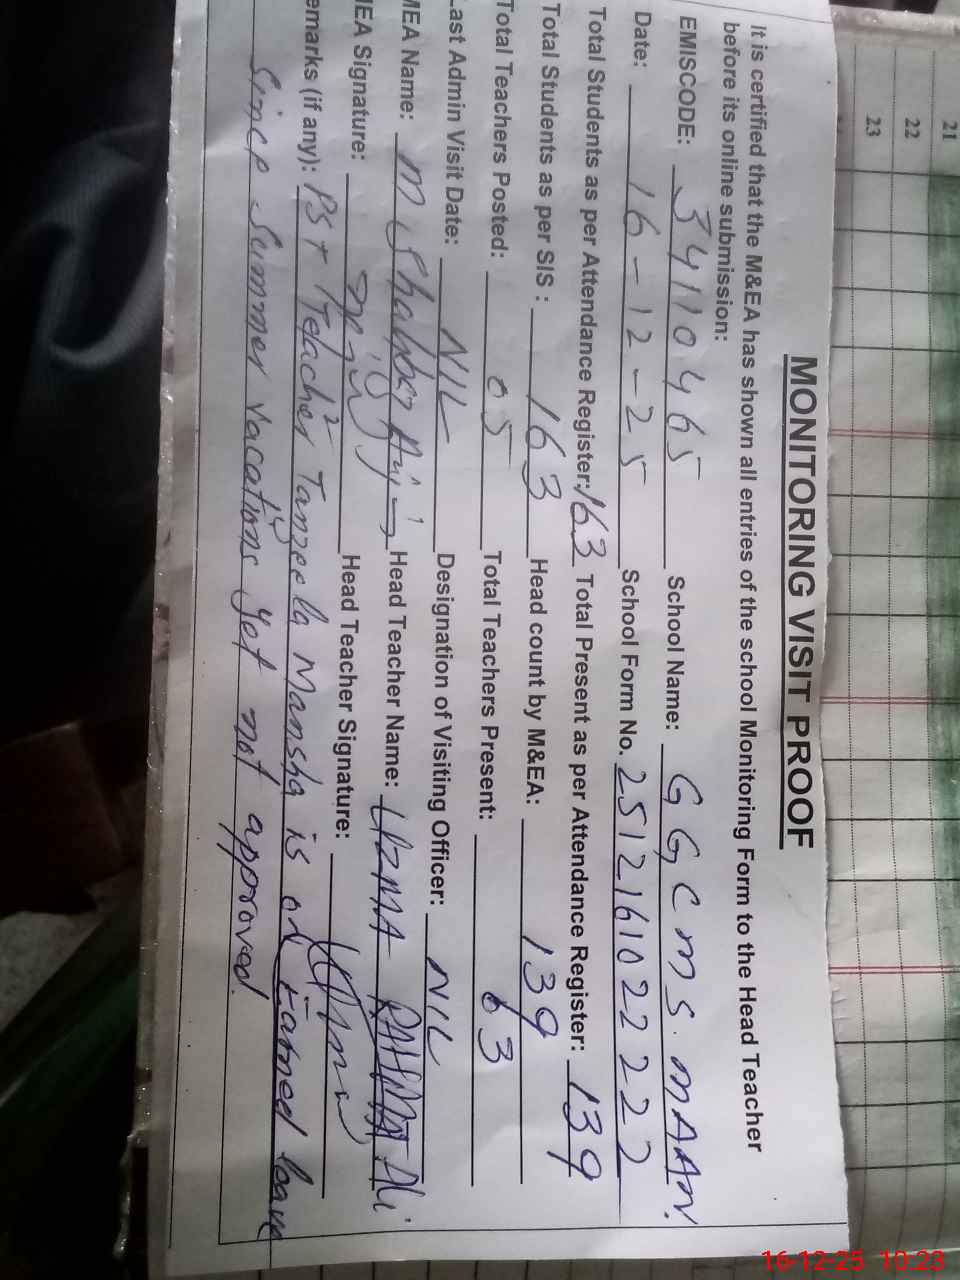 21
22
23
MONITORING VISIT PROOF
It is certified that the M&EA has shown all entries of the school Monitoring Form to the Head Teacher
before its online submission:
EMISCODE: 34110465 School Name: GGCMS. MAAN.
Date: 16-12-25 School Form No. 2512161022222
Total Students as per Attendance Register: 163 Total Present as per Attendance Register: 139
Total Students as per SIS : 163 Head count by M&EA: 139
Total Teachers Posted: 05 Total Teachers Present: 03
Last Admin Visit Date: NIL Designation of Visiting Officer: NIL
MEA Name: M Head Teacher Name: UZMA
MEA Signature: Head Teacher Signature:
emarks (if any): PST Teacher Tanzeela Mansha is on Earned leave
Since Summer Vacations yet not approved.
16-12-25 10:23